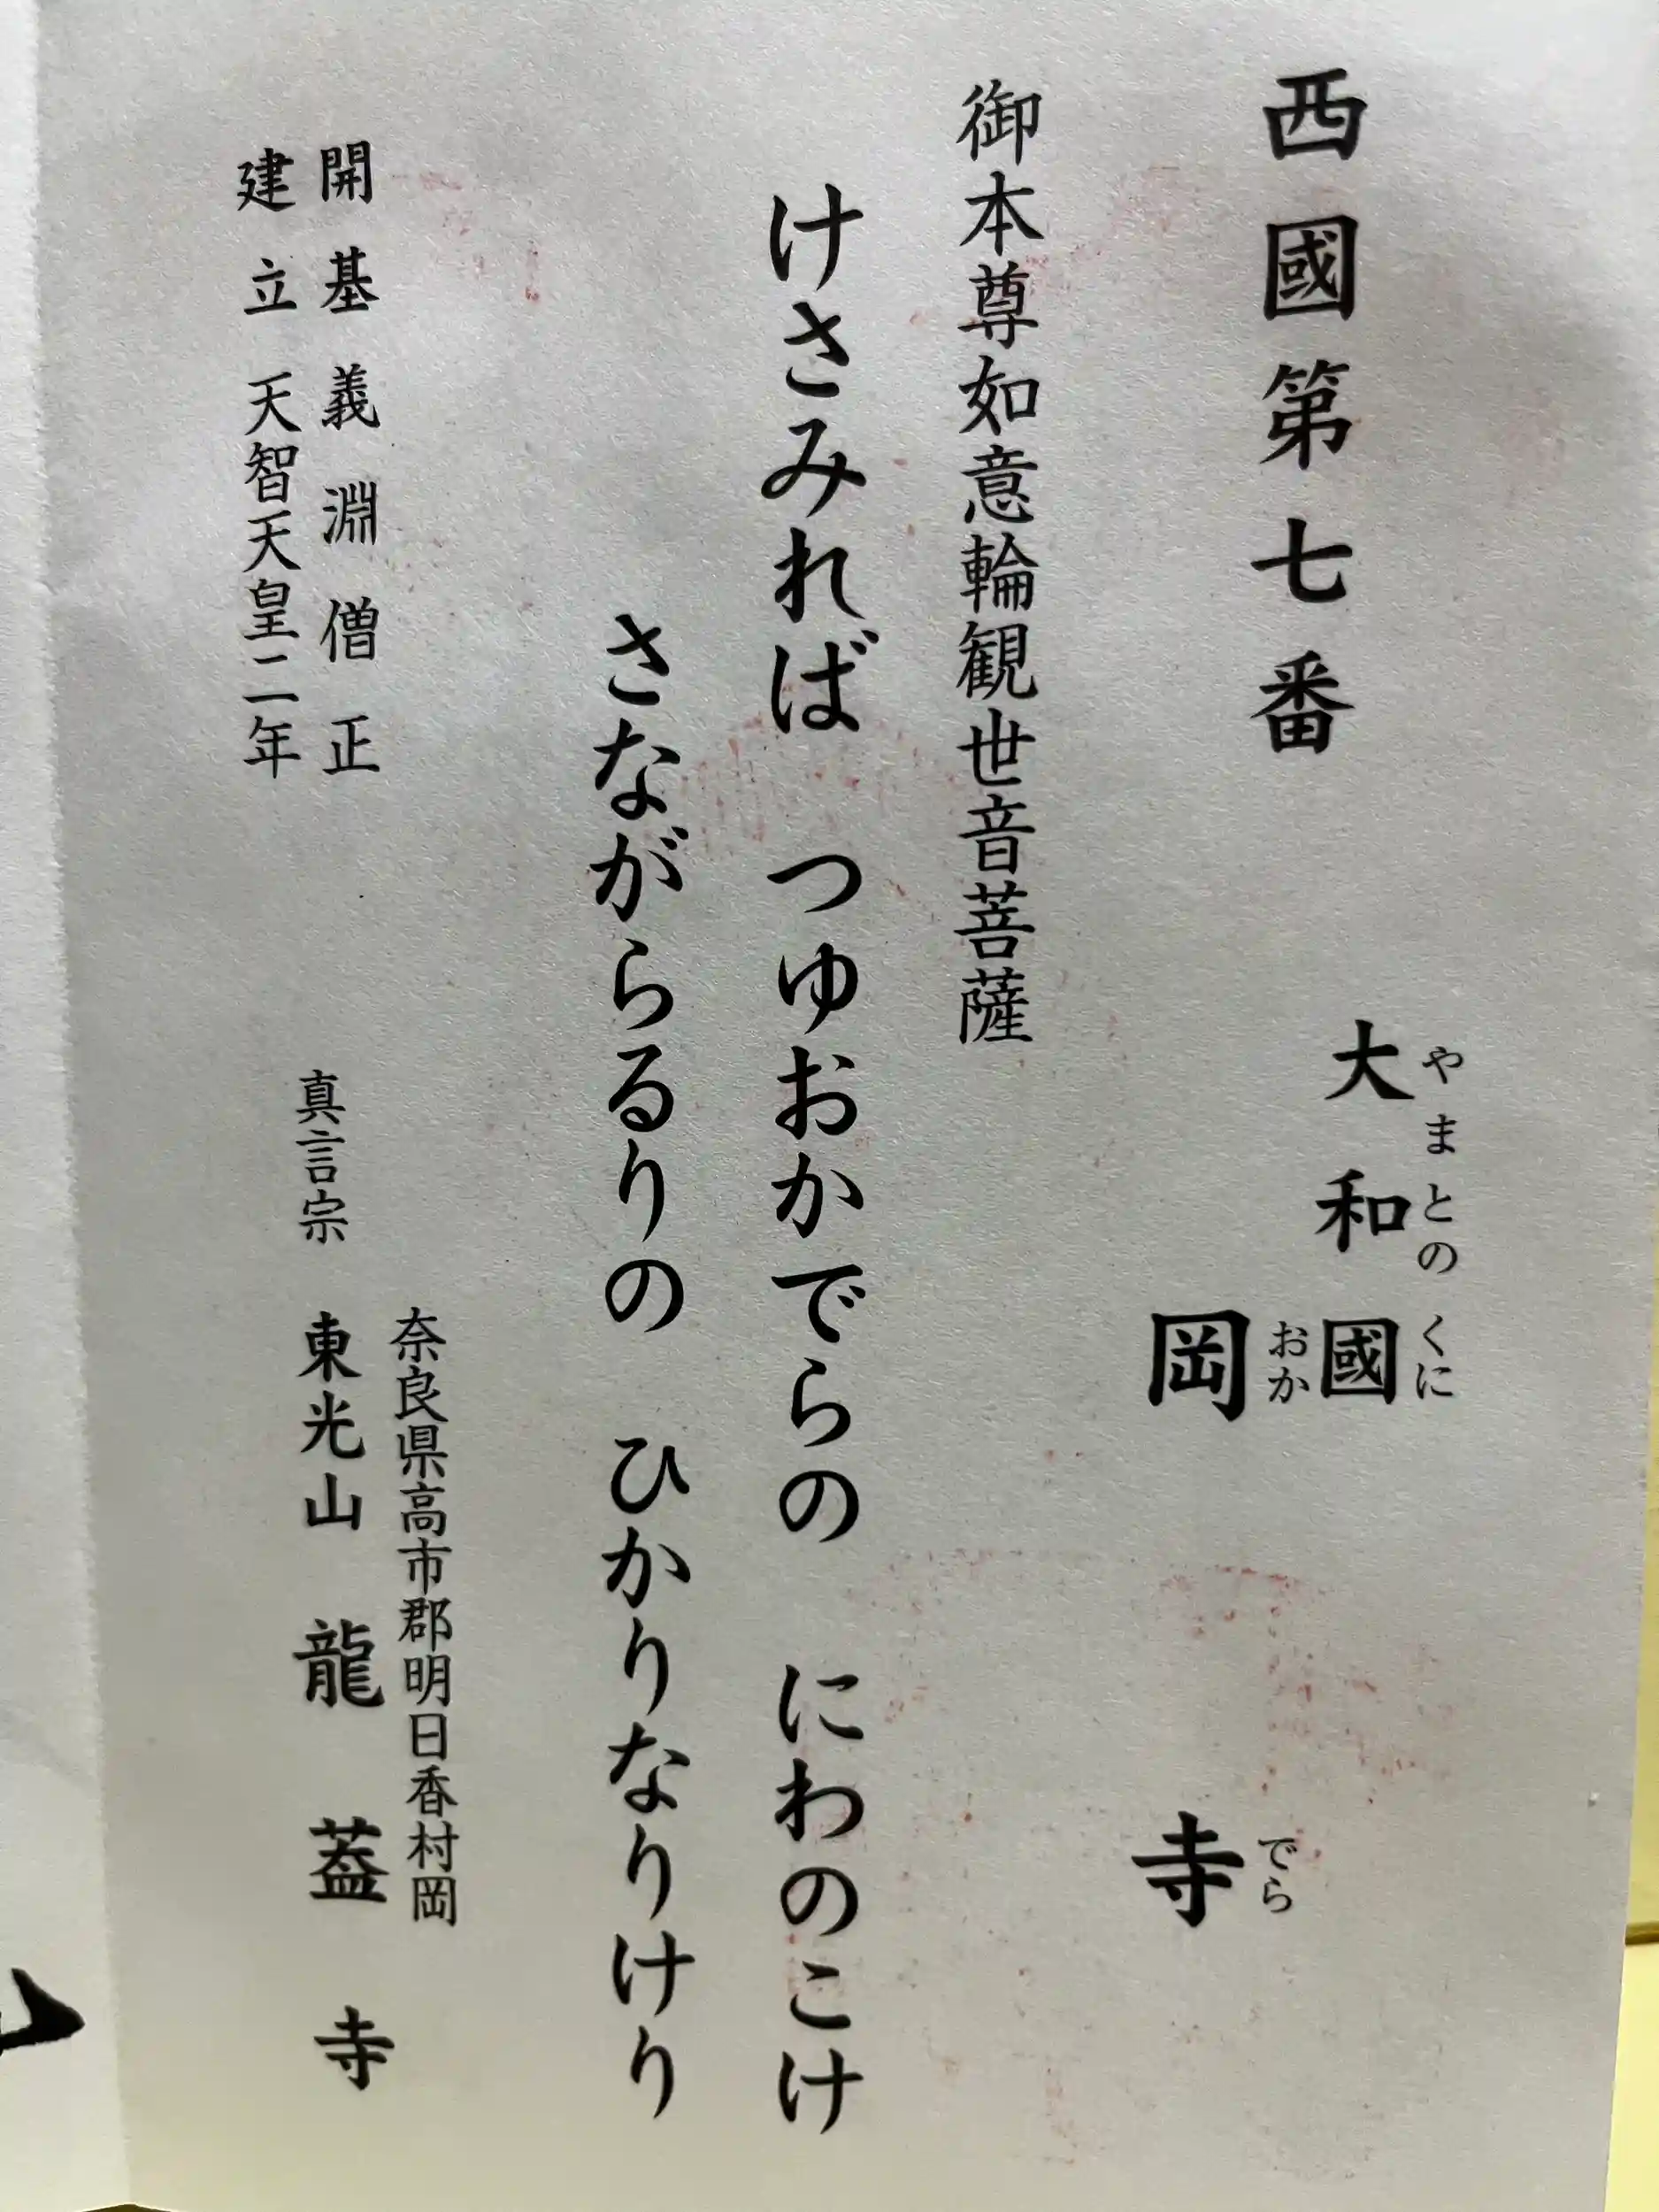 西國第七番
やまとの くに
大和國
おか でら
岡寺
御本尊如意輪観世音菩薩
けさみれば つゆおかでらの にわのこけ
さながらるりの ひかりなりけり
奈良県高市郡明日香村岡
開基義淵僧正
真言宗 東光山 龍蓋寺
建立 天智天皇二年